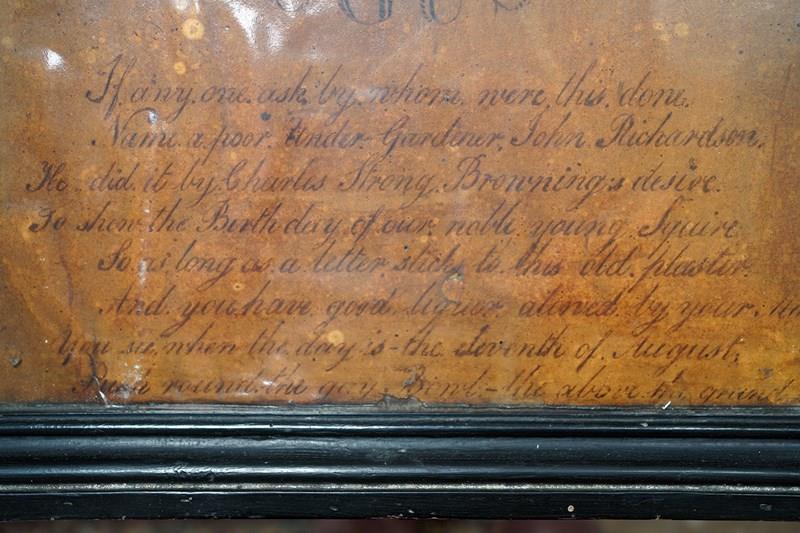 GUS
If any one ask by whom were this done.
Name a poor Under Gardener, John Richardson,
He did it by Charles Strong Browning,s desire.
To shew the Birth day of our noble young Squire
So as long as a letter sticks to this old plaster.
And you have good liquor alowed by your
You see when the day is - the eleventh of August,
Push round the gay Bowl - the above